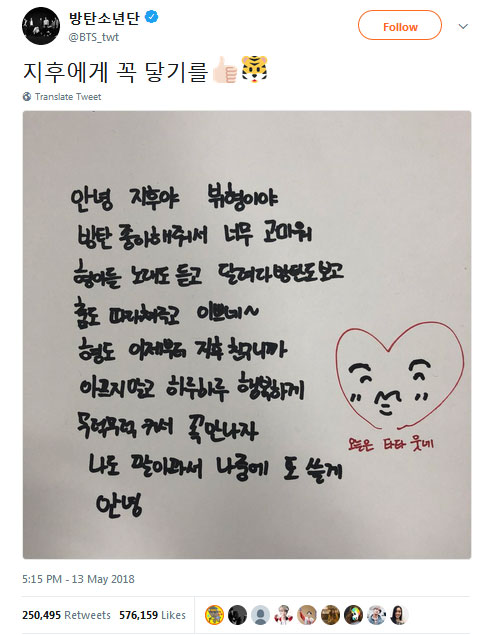 방탄소년단
@BTS_twt
Follow
지후에게 꼭 닿기를👍🏻🐯
Translate Tweet
안녕 지후야 뷔형이야
방탄 좋아해줘서 너무 고마워
형아들 노래도 듣고 달려라방탄도보고
춤도 따라춰주고 이쁘네~
형도 이제부터 지후 친구니까
아프지말고 하루하루 행복하게
무럭무럭 커서 꼭만나자
나도 나중에 또 쓸게
안녕
오늘은 타타 웃네
5:15 PM - 13 May 2018
250,495 Retweets 576,159 Likes